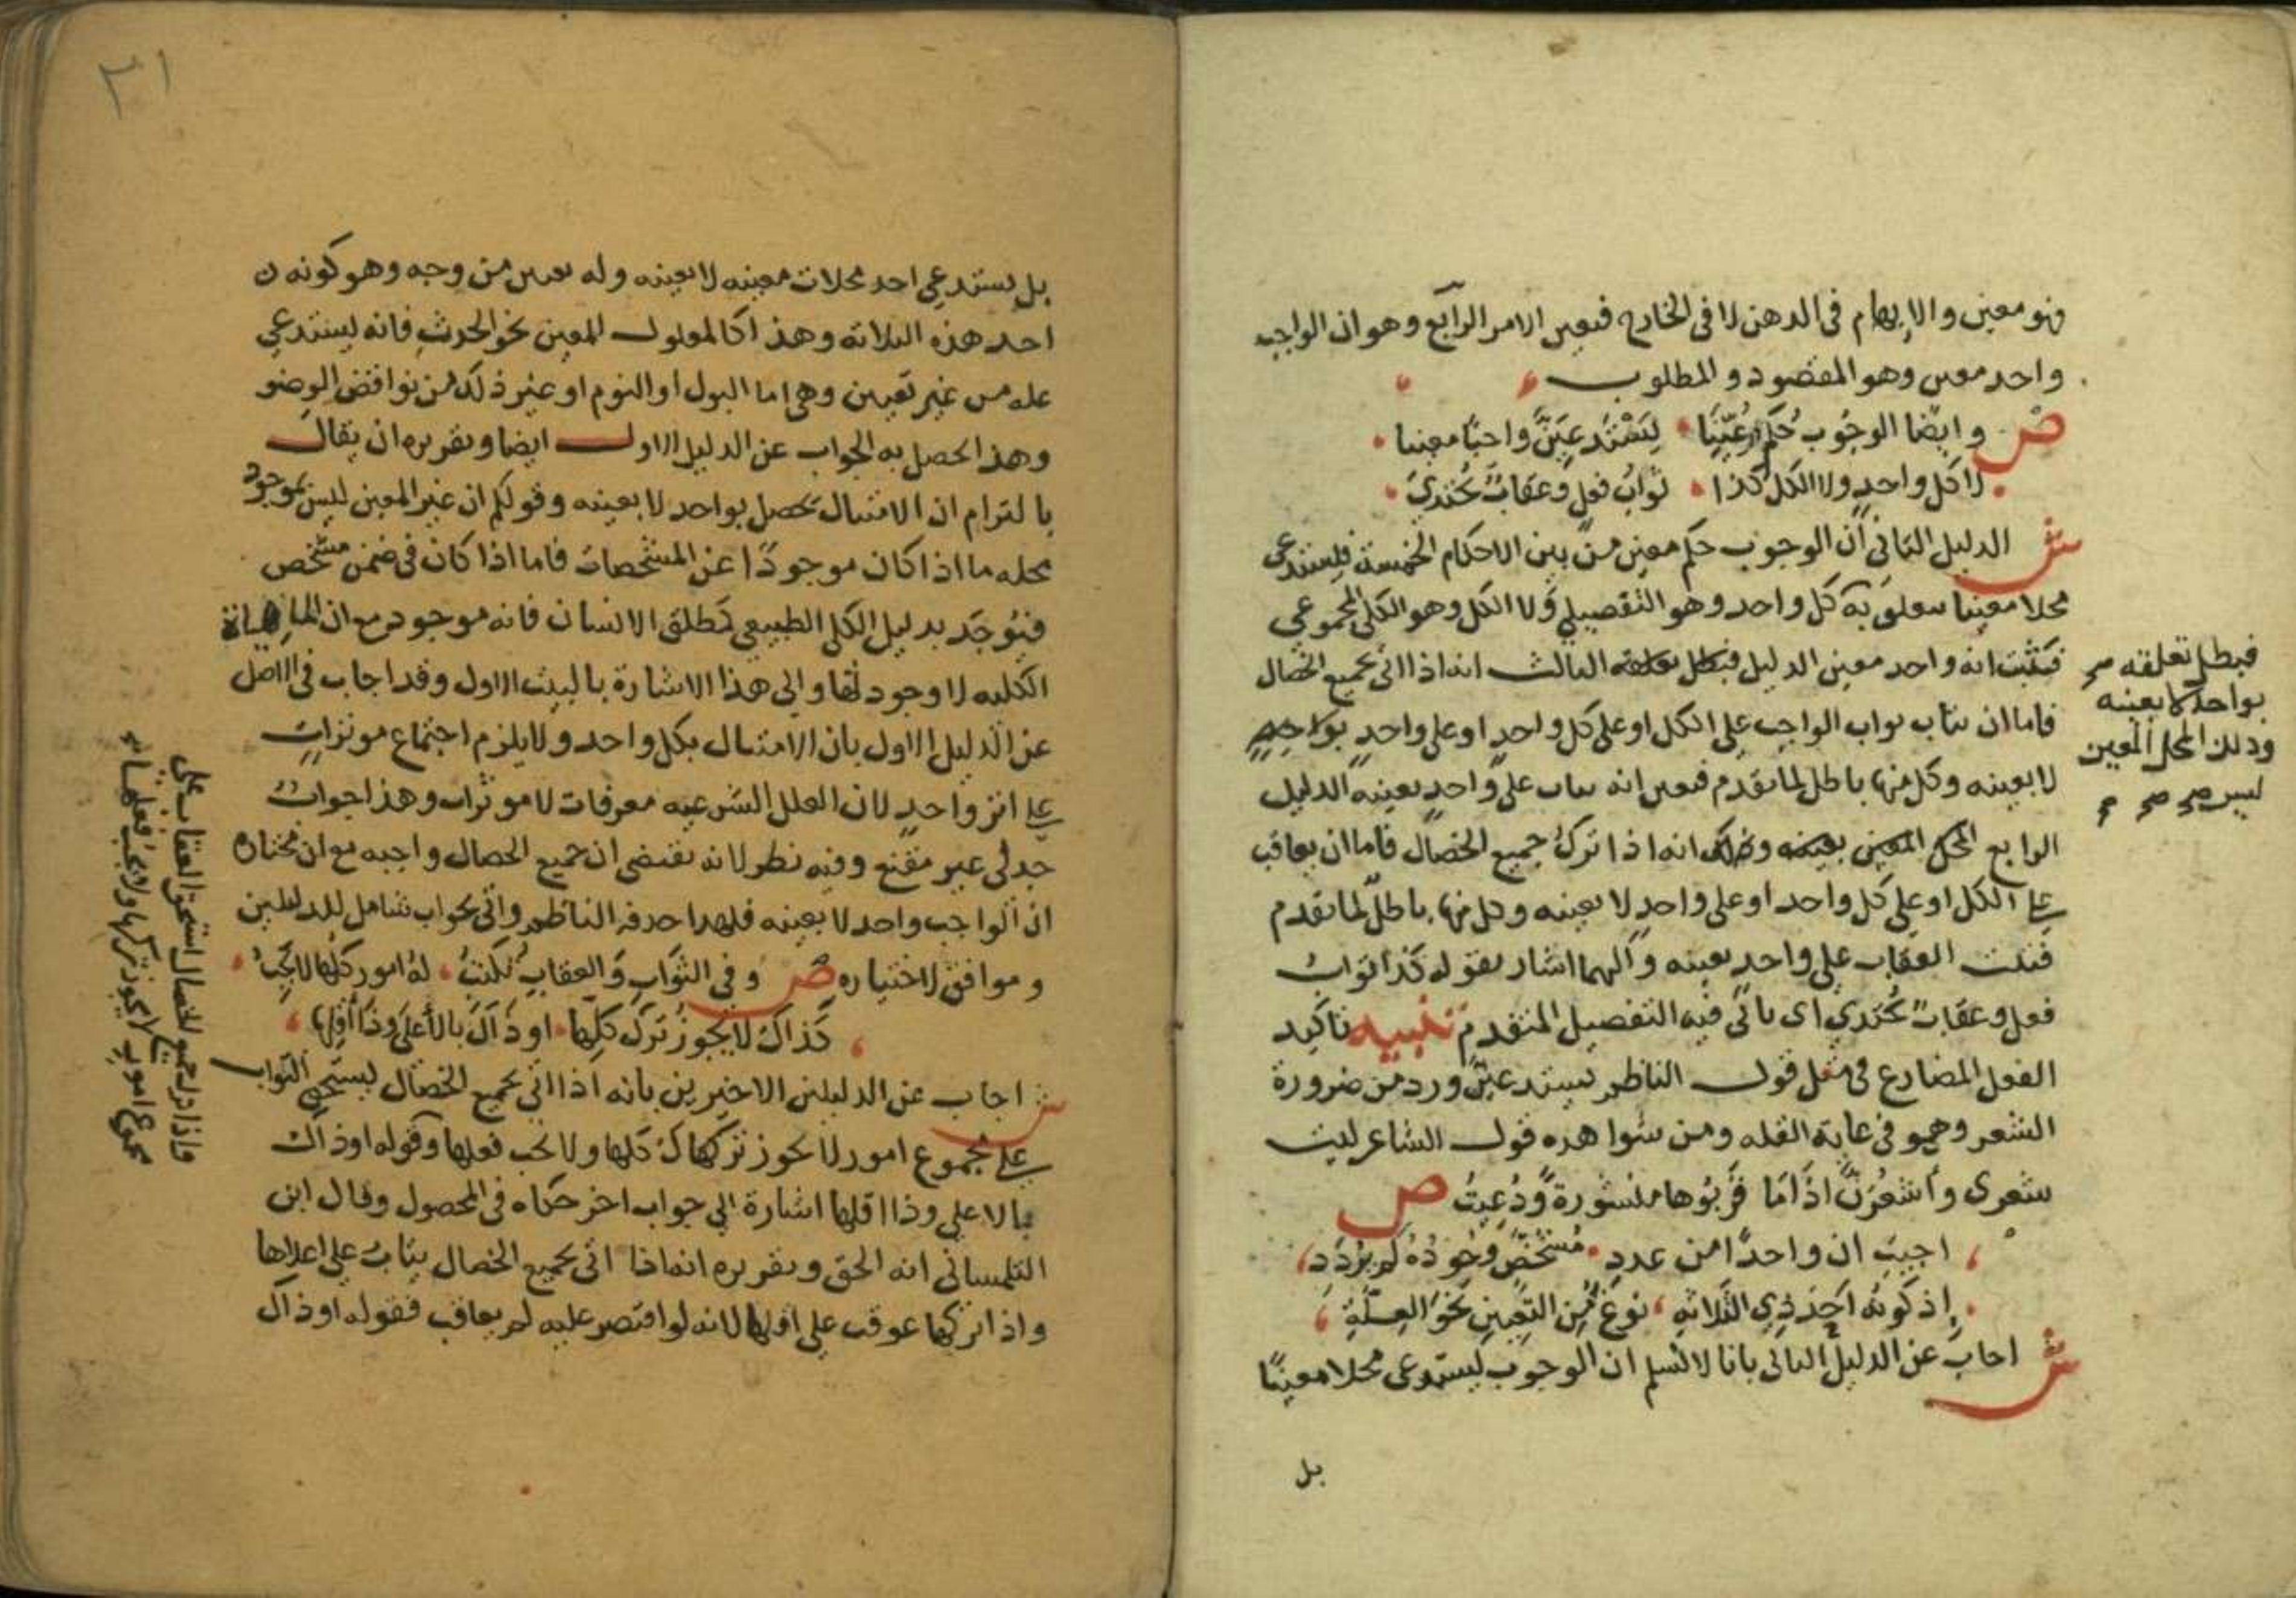 فهو معين والابهام في الذهن لا في الخارج فتعين الامر الرابع وهو ان الواجب
واحد معين وهو المقصود والمطلوب
ص وايضا الوجوب حكم عينا ليستدعين واحدا معينا
لا كل واحد ولا الكل كذا ثواب فعل وعقاب يحتذى
ش الدليل الثاني ان الوجوب حكم معين من بين الاحكام الخمسة فليستدعي
محلا معينا يتعلق به كل واحد وهو التفصيلي ولا الكل وهو الكل المجموعي
فيثبت انه واحد معين الدليل الثالث انه اذا اتى بجميع الخصال
فاما ان يثاب ثواب الواجب على الكل او على كل واحد او على واحد
لا بعينه وكل منها باطل لما تقدم فتعين انه يثاب على واحد بعينه الدليل
الرابع انه اذا ترك جميع الخصال فاما ان يعاقب
على الكل او على كل واحد او على واحد لا بعينه وكل منها باطل لما تقدم
فثبت العقاب على واحد بعينه واليهما اشار بقوله كذا ثواب
فعل وعقاب يحتذي اي ياتي فيه التفصيل المتقدم تنبيه تاكيد
الفعل المضارع في مثل قول الناظم ليستدعين ورد من ضرورة
الشعر وهو في غاية القلة ومن شواهده قول الشاعر ليت
شعري وأشعرن اذا ما قربوها منشورة ودعيت ص
اجيب ان واحدا من عدد مشخص وجوده لم يردد
إذ كونه احد ذي الثلاثة نوع من التعين نحو العلة
ش اجاب عن الدليل الثاني بانا لا نسلم ان الوجوب يستدعي محلا معينا
بل
فبطل تعلقه
بواحد لا بعينه
وذلك المحل المعين
ليس صح صح
٣١
بل يستدعي احد محلات معينه لا بعينه وله تعين من وجه وهو كونه
احد هذه الثلاثة وهذا كالمعلول المعين نحو الحدث فانه يستدعي
علة من غير تعيين وهي اما البول او النوم او غير ذلك من نواقض الوضو
وهذا يحصل به الجواب عن الدليل الاول ايضا وتقريره ان يقال
بالتزام ان الامتثال يحصل بواحد لا بعينه وقولكم ان غير المعين ليس بموجود
محله ما اذا كان موجودا عن المشخصات فاما اذا كان في ضمن مشخص
فيوجد بدليل الكلي الطبيعي كمطلق الانسان فانه موجود مع ان الماهية
الكلية لا وجود لها والى هذا الاشارة بالبيت الاول وقد اجاب في الاصل
عن الدليل الاول بان الامتثال بكل واحد ولا يلزم اجتماع موثرات
على اثر واحد لان العلل الشرعيه معرفات لا موثرات وهذا جواب
جدلي غير مقنع وفيه نظر لانه يقتضي ان جميع الخصال واجبه مع ان مختاره
ان الواجب واحد لا بعينه فلهذا حذفه الناظم واتى بجواب شامل للدليلين
وموافق لاختياره ص وفي الثواب والعقاب نكت له امور كلها لا يجب
كذاك لا يجوز ترك كلها او ذاك بالأعلى وذا أقلها
ش اجاب عن الدليلين الاخيرين بانه اذا اتى بجميع الخصال يستحق الثواب
على مجموع امور لا يجوز تركها كلها ولا يجب فعلها وقوله او ذاك
بالاعلى وذا اقلها اشارة الى جواب اخر حكاه في المحصول وقال ابن
التلمساني انه الحق وتقريره انه اذا اتى بجميع الخصال يثاب على اعلاها
واذا تركها عوقب على اقلها لانه لو اقتصر عليه لم يعاقب فقوله او ذاك
واذا ترك جميع الخصال استحق العقاب على
مجموع امور لا يجوز تركها ولا يجب فعلها